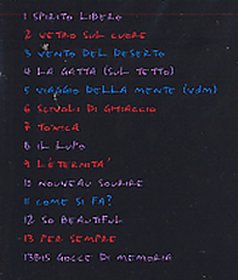 1 SPIRITO LIBERO
2 VETRO SUL CUORE
3 VENTO DEL DESERTO
4 LA GATTA (SUL TETTO)
5 VIAGGIO DELLA MENTE (VdM)
6 SCIVOLI DI GHIACCIO
7 TONICA
8 IL LUPO
9 L'ETERNITA'
10 NOUVEAU SOURIRE
11 COME SI FA?
12 SO BEAUTIFUL
13 PER SEMPRE
13BIS GOCCE DI MEMORIA